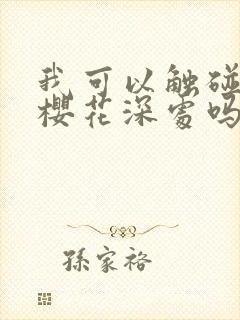 我可以触碰
樱花深处吗
孫家裕